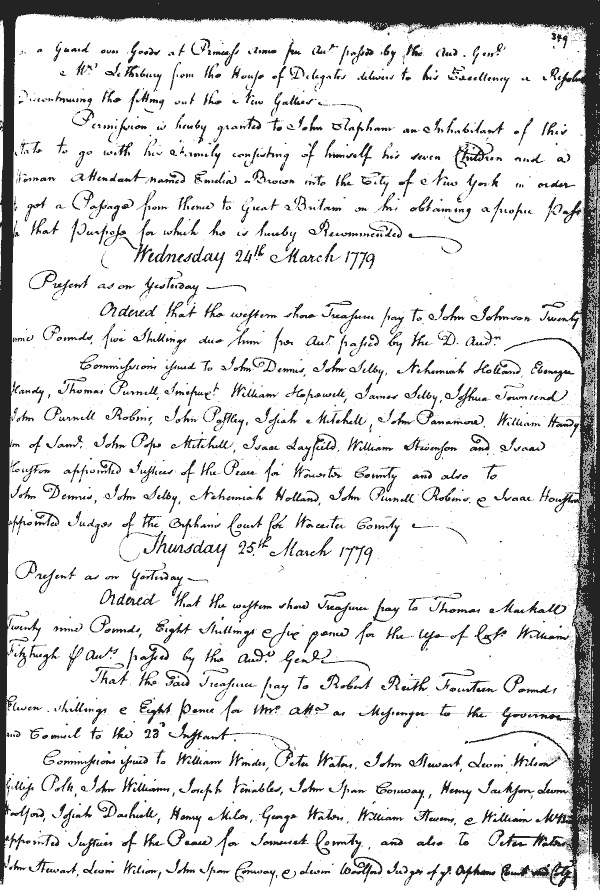 349
a Guard over Goods at Princess Anne per Acct passed by the Aud. Genl.
Mr. Letherbury from the House of Delegates delivers to his Excellency a Resolu
Discontinuing the fitting out the New Gallies
Permission is hereby granted to John Clapham an Inhabitant of this
State to go with his Family consisting of himself his seven Children and a
Woman Attendant named Emelia Brown into the City of New York in order
got a Passage from thence to Great Britain on his obtaining a proper Pass
that purpose for which he is hereby Recommended
Wednesday 24th March 1779
Present as on Yesterday
Ordered that the western shore Treasurer pay to John Johnson Twenty
nine Pounds, five Shillings due him per Acct passed by the D. Audr.
Commissions issued to John Dennis, John Selby, Nehemiah Holland, Ebenezer
Handy, Thomas Purnell William Hopewell, James Selby, Joshua Townsend
John Purnell Robins, John Postley, Josiah Mitchell, John Panamore, William Handy
son of Saml. John Pope Mitchell, Isaac Layfield, William Stevenson and Isaac
Houston appointed Justices of the Peace for Worcester County and also to
John Dennis, John Selby, Nehemiah Holland, John Purnell Robins, & Isaac Houston
appointed Judges of the Orphans Court for Worcester County
Thursday 25.th March 1779
Present as on Yesterday
Ordered that the western shore Treasurer pay to Thomas Mackall
Twenty nine Pounds, Eight Shillings & six pence for the Use of Capt. William
Fitzhugh Acct. passed by the Audr. Genl.
That the said Treasurer pay to Robert Reith Fourteen Pounds
Eleven shillings & Eight Pence for as Messenger to the Governor
and Council to the 23d Instant.
Commissions issued to William Winder, Peter Waters, John Stewart, Levin Wilson
Gilliss Polk, John Williams, Joseph Venables, John Span Conway, Henry Jackson, Levin
Woolford, Josiah Dashiell, Henry Miles, George Waters, William Stevens, & William
appointed Justices of the Peace for Somerset County, and also to Peter Waters
John Stewart, Levin Wilson, John Span Conway, & Levin Woolford Judges of ye. Orphans Court